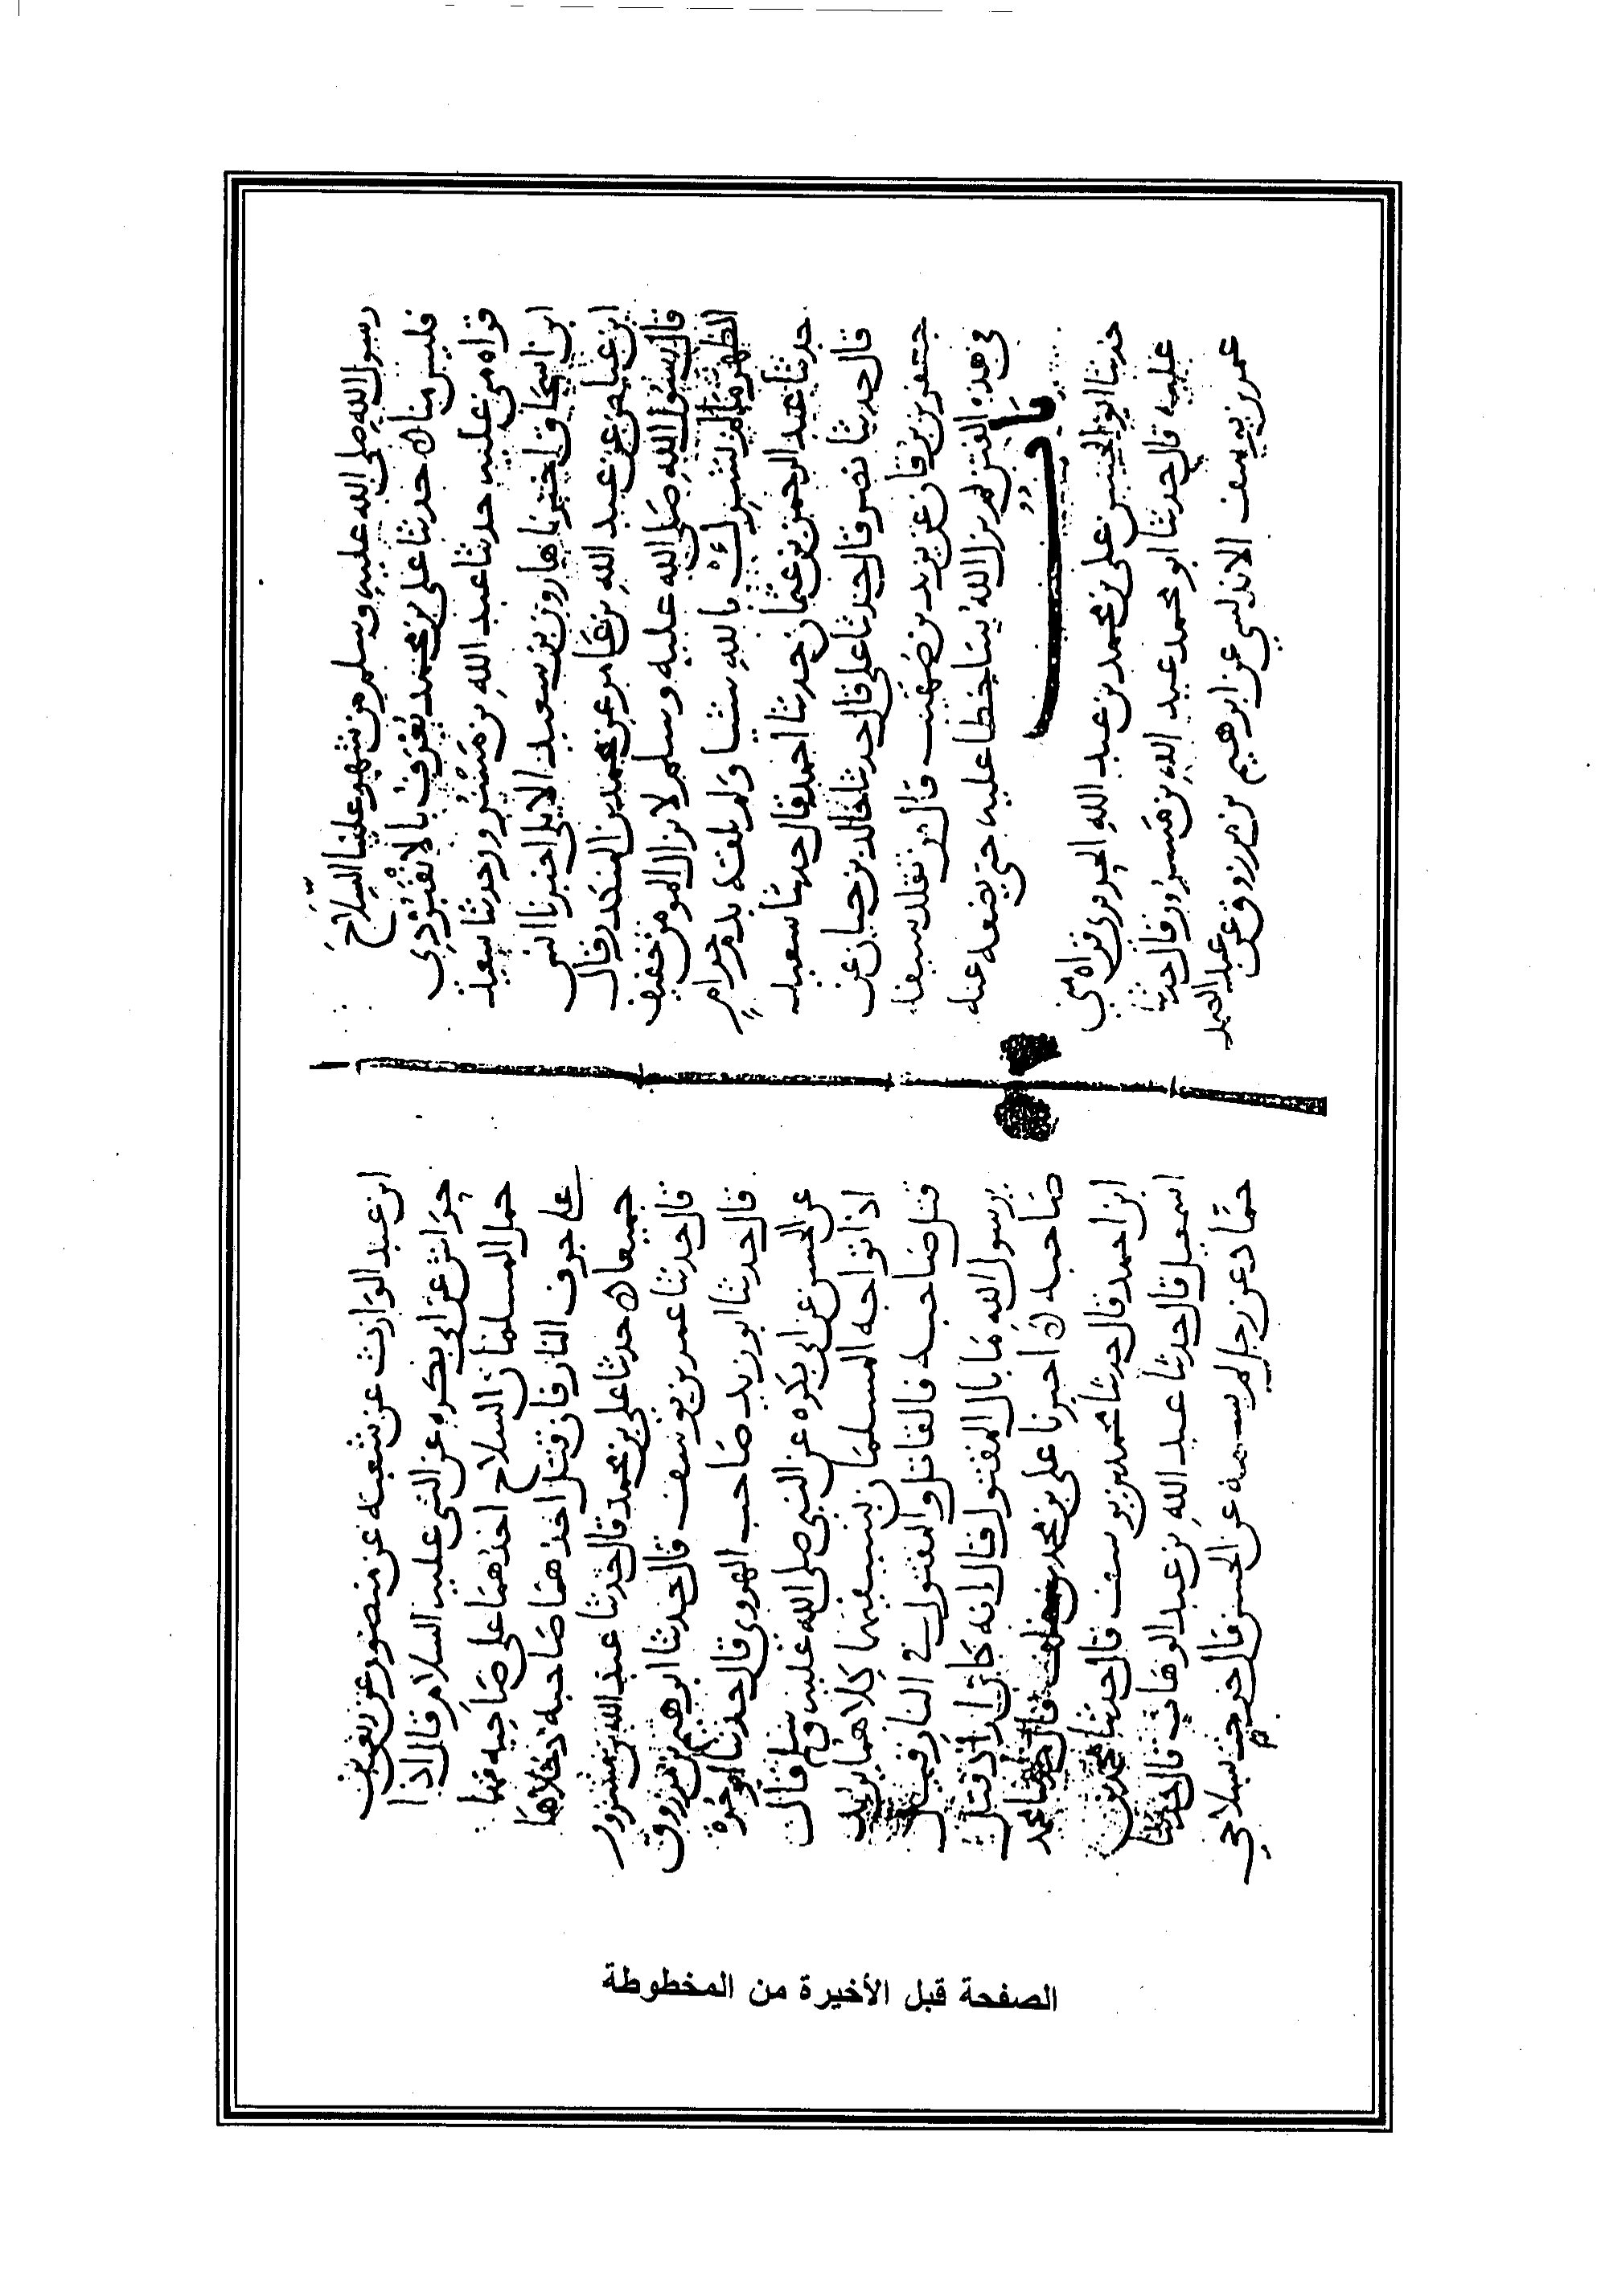 رسول الله صلى الله عليه وسلم من شهر علينا السلاح
فليس منا حدثنا علي بن محمد يعرف بالانفبودي
قراه مني عليه حدثنا عبد الله بن مسرور وحدثنا سعيد
ابن اسحاق اخبرنا هارون بن سعيد الايلي اخبرنا انس
ابن عياض عن عبد الله بن عامر عن محمد بن المنكدر قال
قال رسول الله صلى الله عليه وسلم لا يزال المومن خفيف
الظهر ما لم يشرك بالله شيا ولم يلقه بدم حرام
حدثنا عبد الرحمن بن عثمان حدثنا احمد قال حدثنا سعيد
قال حدثنا نصر قال حدثنا علي قال حدثنا خالد بن حيان عن
جعفر بن برقان عن يزيد بن صهيب قال من تقلد سيفا
في هذه الفتن لم يزل الله ساخطا عليه حتى يضعه عنه
باب
حدثنا ابو الحسن علي بن محمد بن عبد الله الحروري قراه مني
عليه قال حدثنا ابو محمد عبد الله بن مسرور قال حدثنا
عمر بن يوسف الاندلسي عن ابرهيم بن مرزوق عن عبد الصمد
ابن عبد الوارث عن شعبه عن منصور عن ربعي بن
حراش عن ابي بكره عن النبي عليه السلام قال اذا
حمل المسلمان السلاح احدهما على صاحبه فهما
على جرف النار فان قتل احدهما صاحبه دخلاها
جميعا حدثنا علي بن محمد قال حدثنا عبد الله بن مسرور
قال حدثنا عمر بن يوسف قال حدثنا ابرهيم بن مرزوق
قال حدثنا ابو زيد صاحب الهروي قال حدثنا ابو حره
عن الحسن عن ابي بكره عن النبي صلى الله عليه وسلم قال
اذا تواجه المسلمان بسيفيهما كلاهما يريد
قتل صاحبه فالقاتل والمقتول في النار قيل
يرسول الله ما بال المقتول قال انه كان اراد قتل
صاحبه اخبرنا علي بن محمد بن خلف قال حدثنا محمد
ابن احمد قال حدثنا محمد بن يوسف قال حدثنا محمد بن
اسمعيل قال حدثنا عبد الله بن عبد الوهاب قال حدثنا
حماد عن رجل لم يسمه عن الحسن قال خرجت بسلاحي
الصفحة قبل الأخيرة من المخطوطة